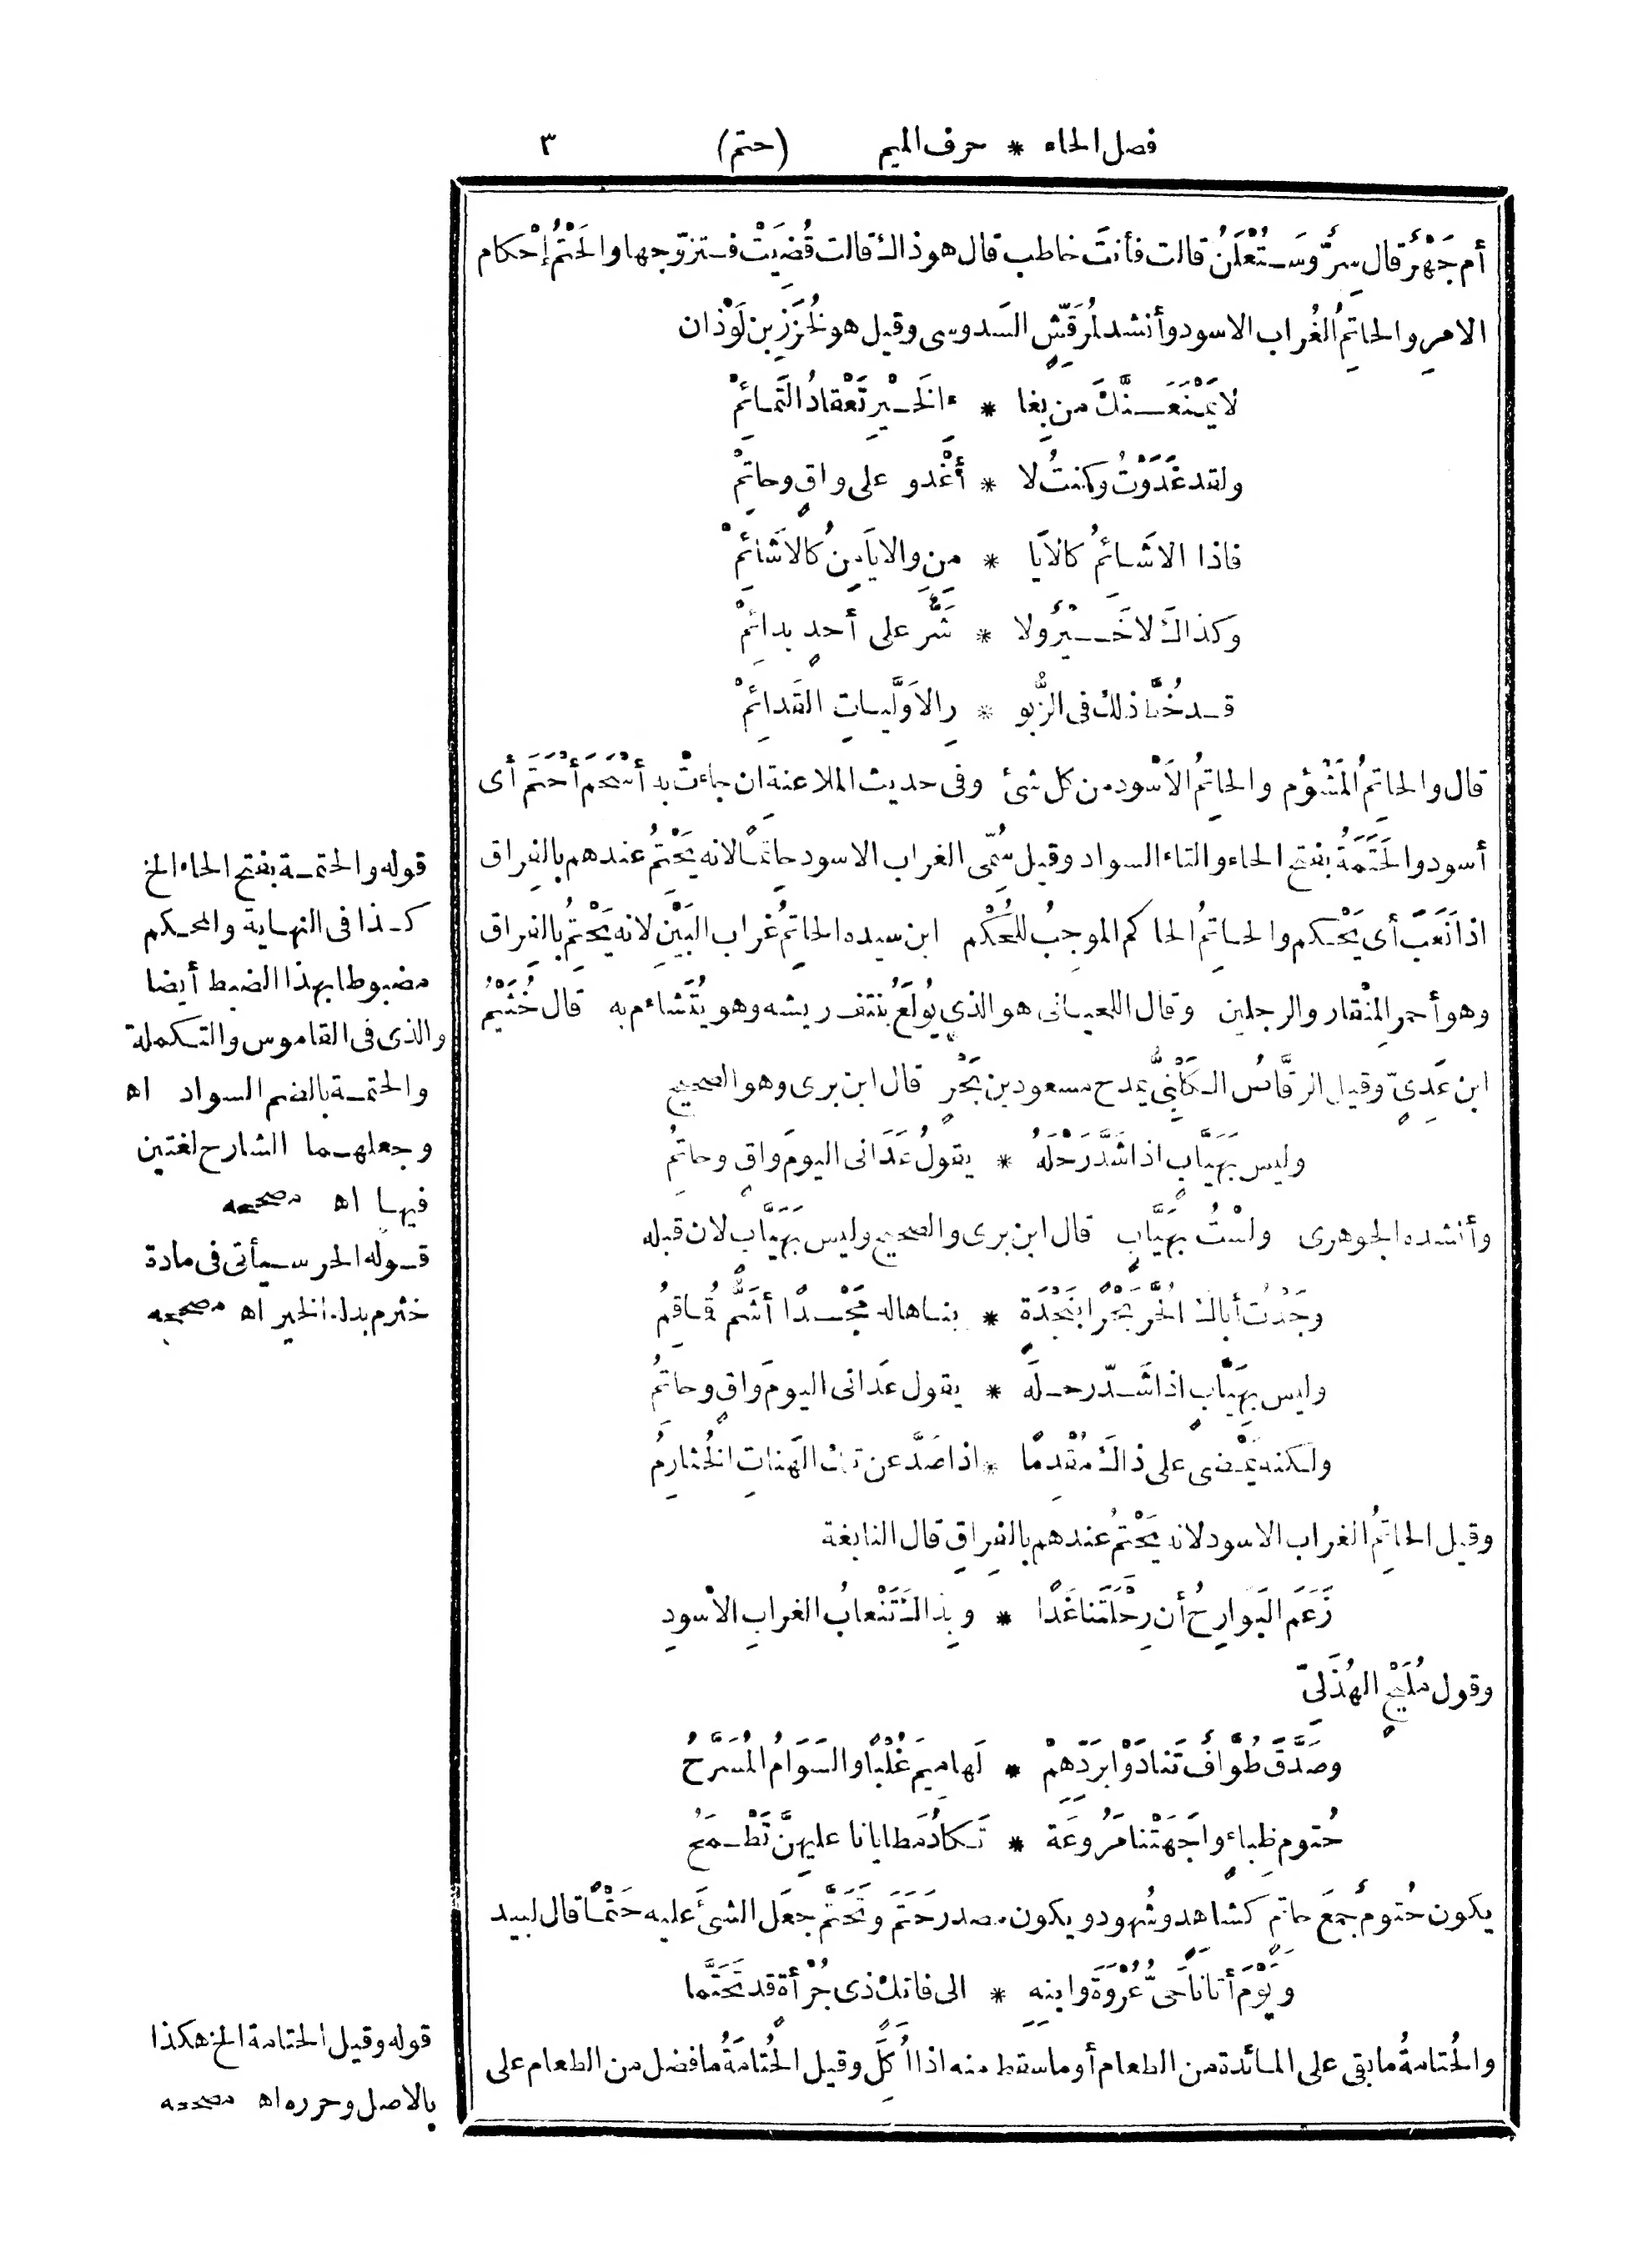 فصل الحاء * حرف الميم (حتم) ٣
أم جَهْرٌ قال سِرٌّ وسَتُعْلَنُ قالت فأنتَ خاطب قال هو ذاك قالت قُضِيَتْ فتزوّجها والحَتْمُ إِحْكام
الامرِ والحاتِمُ الغُراب الاسود وأنشد لمُرَقِّشٍ السَدوسى وقيل هو لخُزَزِ بن لَوْذان
لا يَمْنَعَنَّكَ من بِغا * ءِ الخَيْرِ تَعْقادُ التَّمائِمْ
ولقد غَدَوْتُ وكنتُ لا * أَغْدو على واقٍ وحاتِمْ
فاذا الاَشائِمُ كالاَيا * مِنِ والايَامِنُ كالاَشائِمْ
وكذاكَ لا خَيْرٌ ولا * شَرٌّ على أحدٍ بدائِمْ
قد خُطَّ ذلك فى الزُّبو * رِ الاَوَّلِيات القَدائِمْ
قال والحاتِمُ المَشْؤم والحاتِمُ الاَسْود من كل شئ وفى حديث الملاعنة ان جاءتْ به أَسْحَمَ أَحْتَمَ أى
أسود والحَتَمَةُ بفتح الحاء والتاء السواد وقيل سُمّى الغراب الاسود حاتِمًا لانه يَحْتِمُ عندهم بالفِراق
اذا نَعَبَ أى يَحْكم والحاتِمُ الحاكم الموجِبُ للحُكْم ابن سيده الحاتِمُ غُراب البَيْنِ لانه يَحْتِمُ بالفِراق
وهو أحمر المِنْقار والرجلين وقال اللحيانى هو الذى يُولَعُ بنَتف ريشه وهو يُتَشاءم به قال خُثَيْمُ
ابن عَدِىّ وقيل الرقَّاص الكَلْبِىُّ يمدح مسعود بن بَحْرٍ قال ابن برى وهو الصحيح
وليس بهَيَّابٍ اذا شَدَّ رَحْلَهُ * يقولُ عَدَانى اليومَ واقٍ وحاتِمُ
وأنشده الجوهرى ولسْتُ بهَيَّابٍ قال ابن برى والصحيح وليس بهَيَّاب لان قبله
وجَدْتُ أباك الخَرَّ بَحْرًا بنَجْدَةٍ * بناها له مَجْدًا أَشَمُّ قُماقِمُ
وليس بهَيَّابٍ اذا شَدّ رحلَه * يقول عَدَانى اليومَ واقٍ وحاتِمُ
ولكنه يَمْضى على ذاكَ مُقْدِمًا * اذا صَدَّ عن تلك الهَناتِ الخُثارِمُ
وقيل الحاتِمُ الغراب الاسود لانه يَحْتِمُ عندهم بالفِراقِ قال النابغة
زَعَم البَوارِحُ أن رِحْلَتَنا غَدًا * وبِذالكَ تَنْعابُ الغرابِ الاسْودِ
وقول مُلَيْحٍ الهُذَلِىّ
وصَدَّقَ طُوّافٌ تَنادَوْا برَدِّهِمْ * لَهاميمَ غُلْبًا والسَوَامُ المُسَرَّحُ
حُتوم ظِباءٍ واجَهَتْنا مَرُوعَة * تَكادُ مَطايانا عليهِنَّ تَطْمَحُ
يكون حُتومٌ جمعَ حاتم كشاهد وشُهود ويكون مصدر حَتَمَ وتَحَتَّمَ جعَل الشئَ عليه حَتْمًا قال لبيد
ويَوْمَ أتانا حَىُّ عُرْوَةَ وابنِهِ * الى فاتك ذى جُرْأَة قد تَحَتَّما
والحُتامةُ ما بقى على المائدة من الطعام أو ما سقط منه اذا أُكِلَ وقيل الحُتامَةُ ما فضل من الطعام على
قوله والحتمة بفتح الحاء الخ
كذا فى النهاية والمحكم
مضبوطا بهذا الضبط أيضا
والذى فى القاموس والتكملة
والحتمة بالضم السواد اه
وجعلهما الشارح لغتين
فيها اه مصححه
قوله الحر سيأتى فى مادة
خثرم بدله الخير اه مصححه
قوله وقيل الحتامة الخ هكذا
بالاصل وحرره اه مصححه